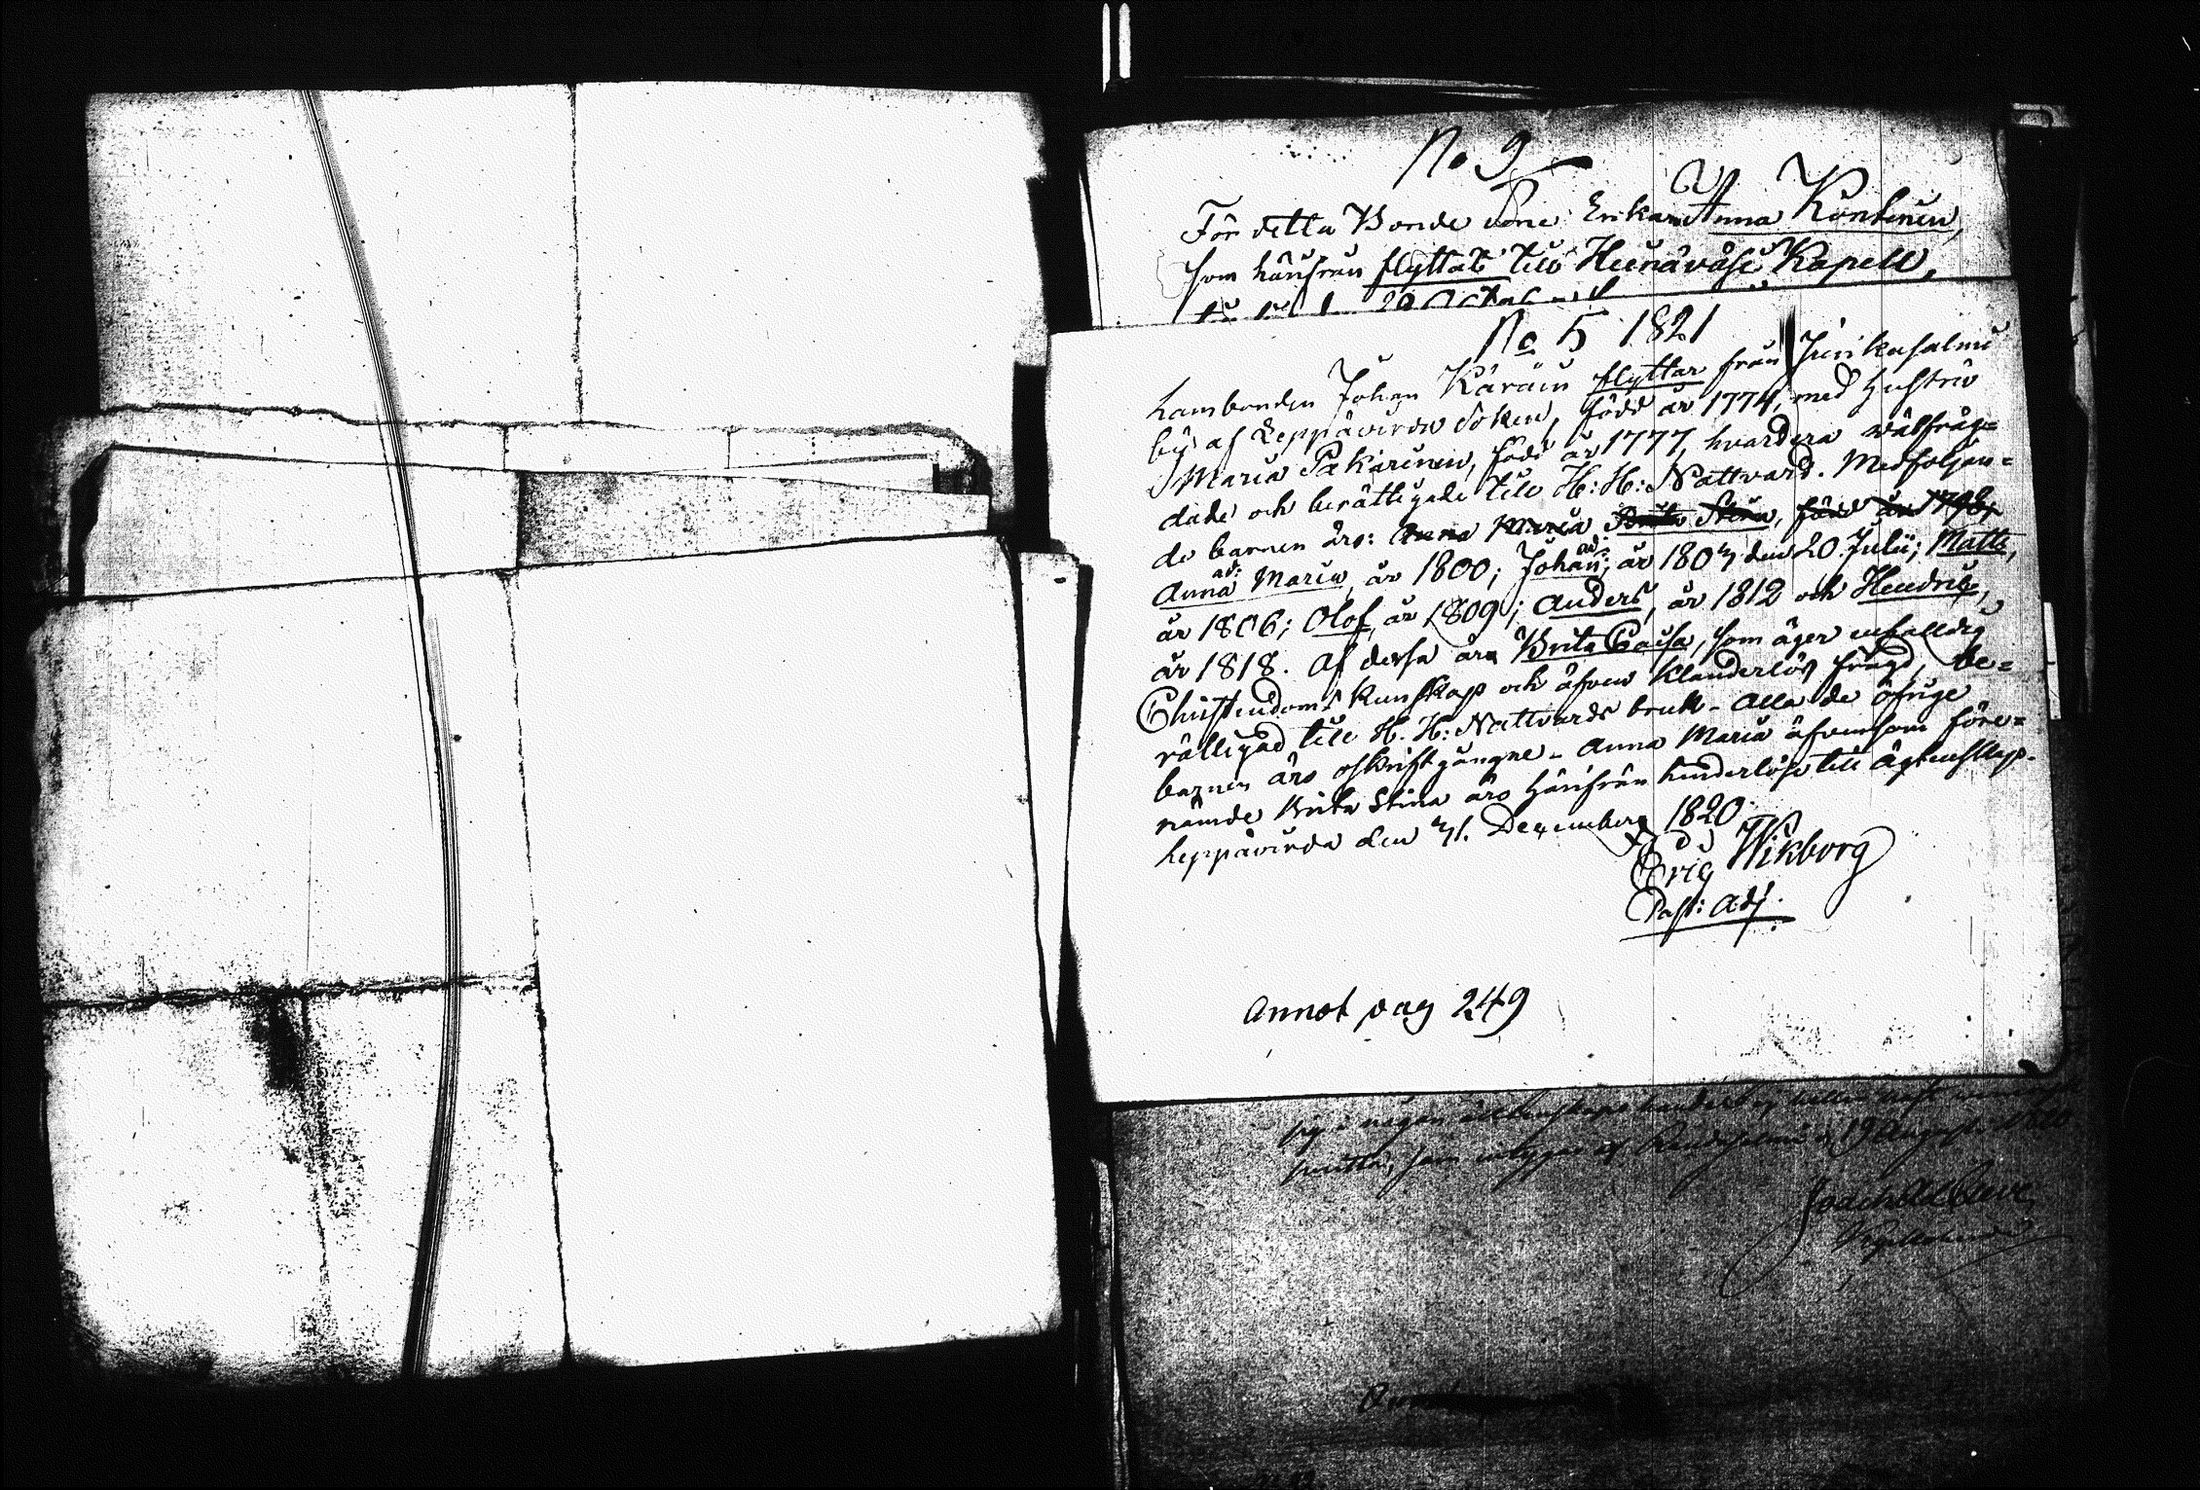 No 9
För detta Bonde Enkan Anna Kontinen,
som härifrån flyttat till Heinäväsi Kapell,
No 5 1821
Lambonden Johan Käräin flyttar från Jurikasalmi
by af Leppävirda Sokn, född år 1774, med Hustru
Maria Pakarinen, född år 1777, hvardera wälfräg=
dade och berättigade till H: H: Nattvard. Medföljan=
de barnen äro: Anna Maria Brita Stina, född år 1798,
Anna Maria, år 1800; Johan, år 1803 den 20 Julii; Matts,
år 1806; Olof, år 1809; Anders, år 1812 och Hendric,
år 1818. Af dessa äro Brita Caisa, som äger enfalldig
Christendoms Kunskap och äfven klanderlös frägd, be=
rättigad till H. H: Nattvards bruk - Alla de öfrige
barnen äro oskriftgångne - Anna Maria äfvensom före=
nämde Brita Stina äro härifrån hinderlöse till ägtenskap.
Leppävirda den 31. December 1820
Eric Wikborg
Past: Adj.
Annot pag 249
19 Augusti